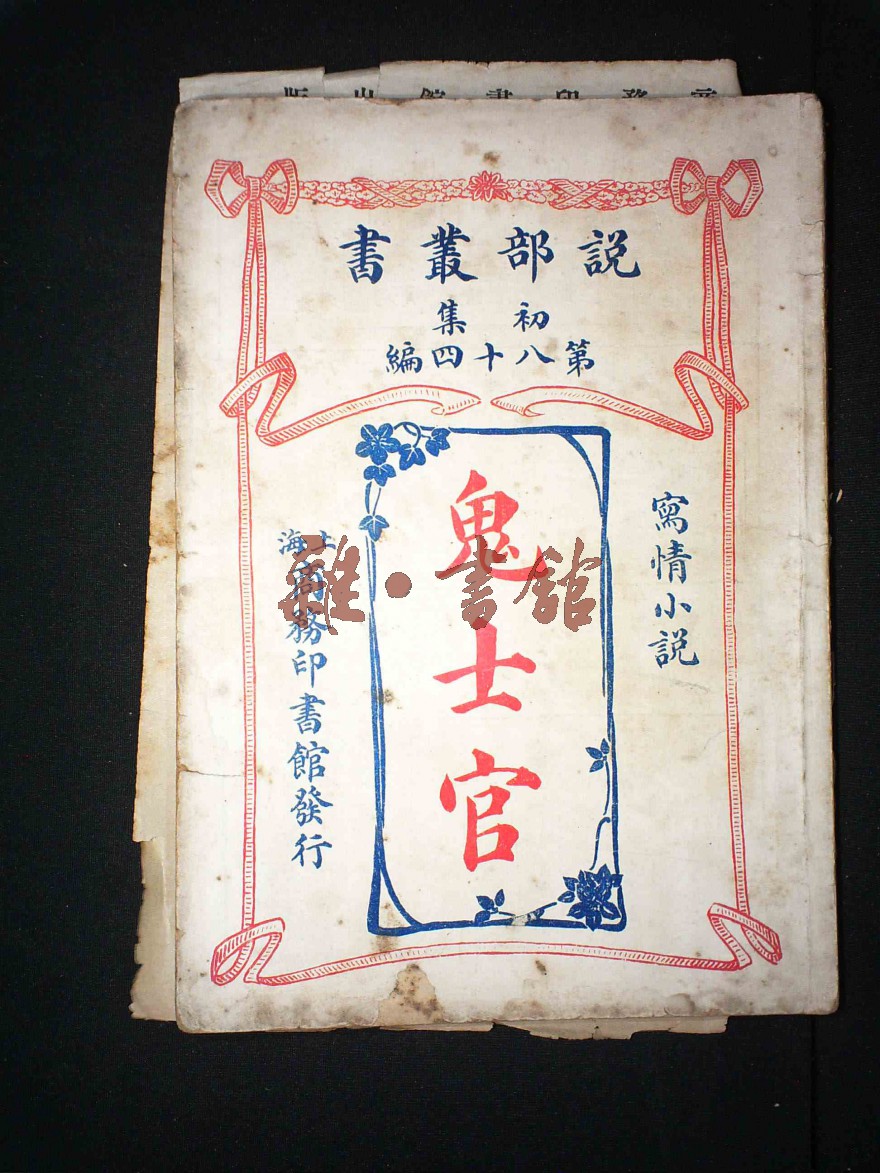 商務印書館出版
說部叢書
初集
第八十四編
寫情小說
鬼士官
上海商務印書館發行
雜·書館